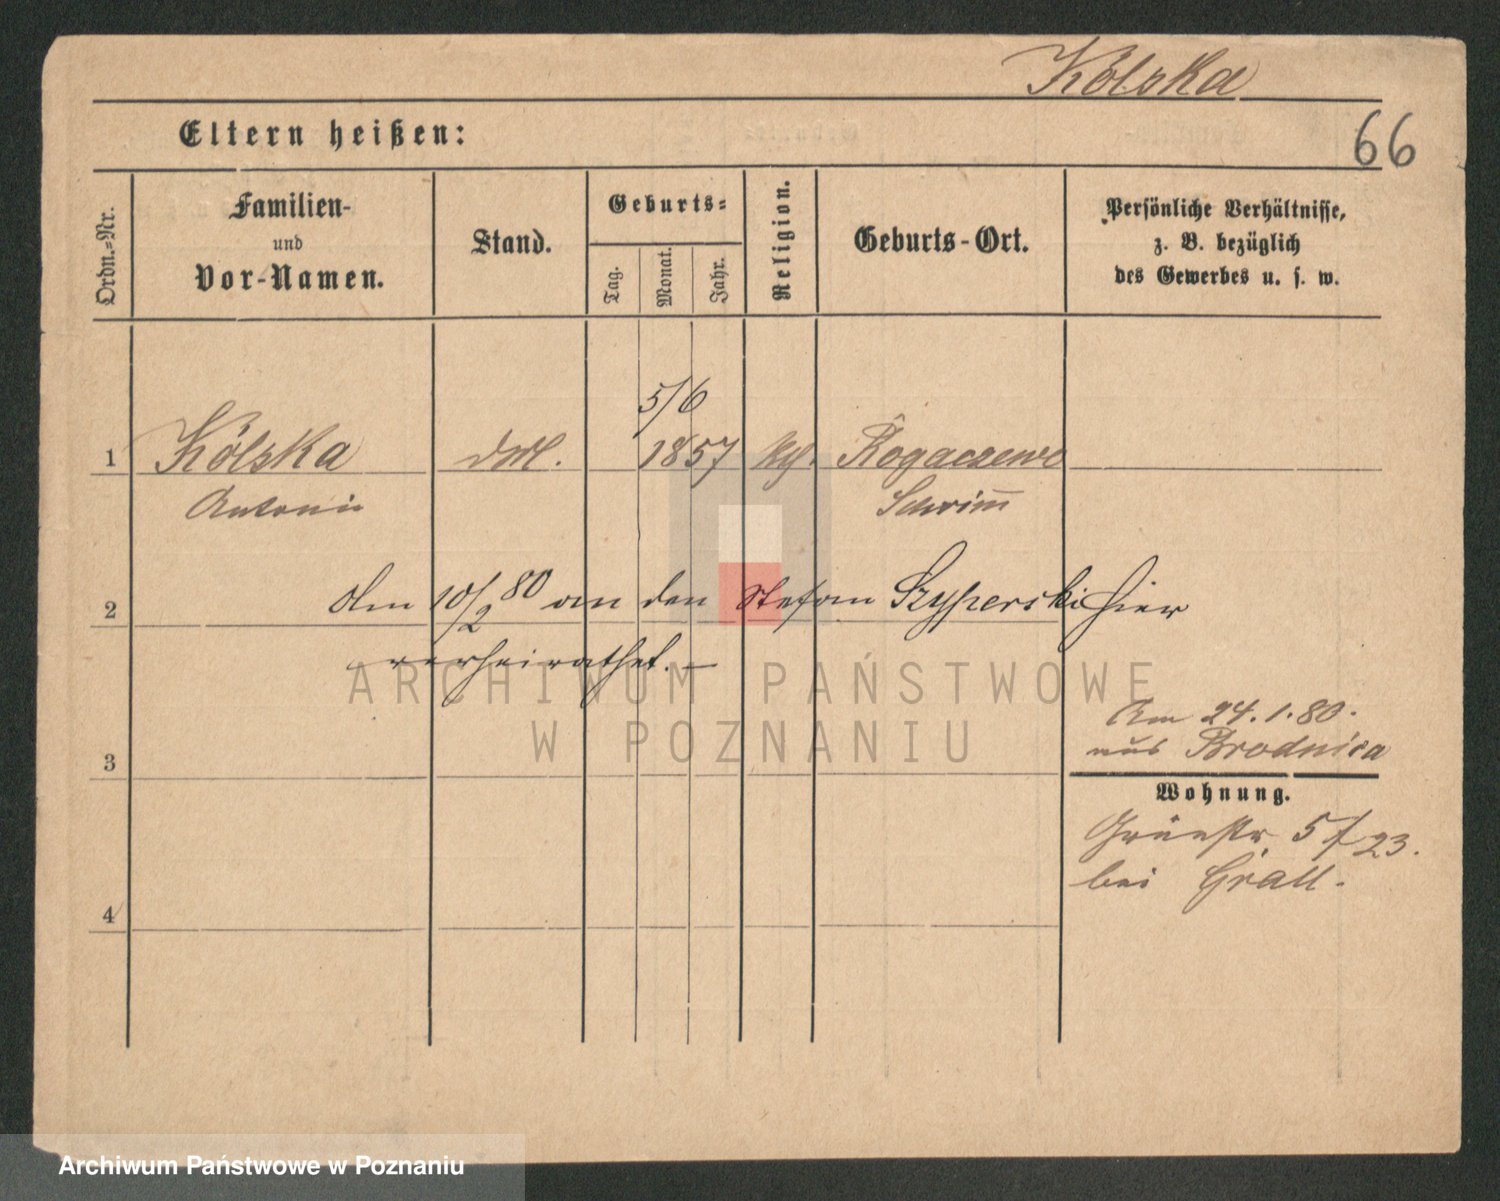 Kólska
66
Eltern heißen:
Ordn.-Nr.
Familien-
und
Vor-Namen.
Stand.
Geburts-
Tag.
Monat.
Jahr.
Religion.
Geburts-Ort.
Persönliche Verhältnisse,
z. B. bezüglich
des Gewerbes u. s. w.
5/6
1 Kólska 1857 Rogaczewo
Antonie Schrim̄
2 Am 10/2 80 an den Stefan Szyperski hier
verheirathet. —
ARCHIWUM PAŃSTWOWE
W POZNANIU
Am 24.1.80.
aus Brodnica
3
Wohnung.
Grünstr. 5 / 23.
bei Grall.
4
Archiwum Państwowe w Poznaniu